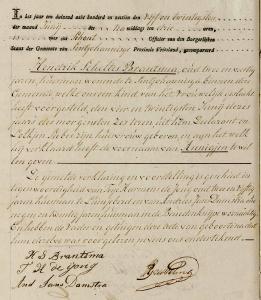 In het jaar een duizend acht honderd en zestien den vijf en twintigsten
der maand Junij des na middags ten drie uren
is voor ons Officier van den Burgerlijken
Staat der Gemeente van Provincie Vriesland, gecompareerd
Hendrik Scheltes Brantsma, oud twee en veertig
jaren, huisman wonende te binnen deze
Gemeente welke ons een kind van het vrouwelijk geslacht
heeft voorgesteld, den vier en twintigsten Junij dezes
jaars des morgens ten zes uren uit hem Declarant en
zijne huisvrouw geboren, en aan het welk
hij verklaard heeft de voornaam van te wil
len geven
De gemelde verklaring en voorstelling is geschied in
tegenwoordigheid van de Jong oud twee en vijftig
jaren huisman te en van Andries Jans Damstra oud
negen en jaren huisman mede
En hebben de Vader en getuigen deze acte van geboorte na dat
hun dezelve was voorgelezen nevens ons onderteekend
H S Brantsma
T H de Jong
And Jans Damstra